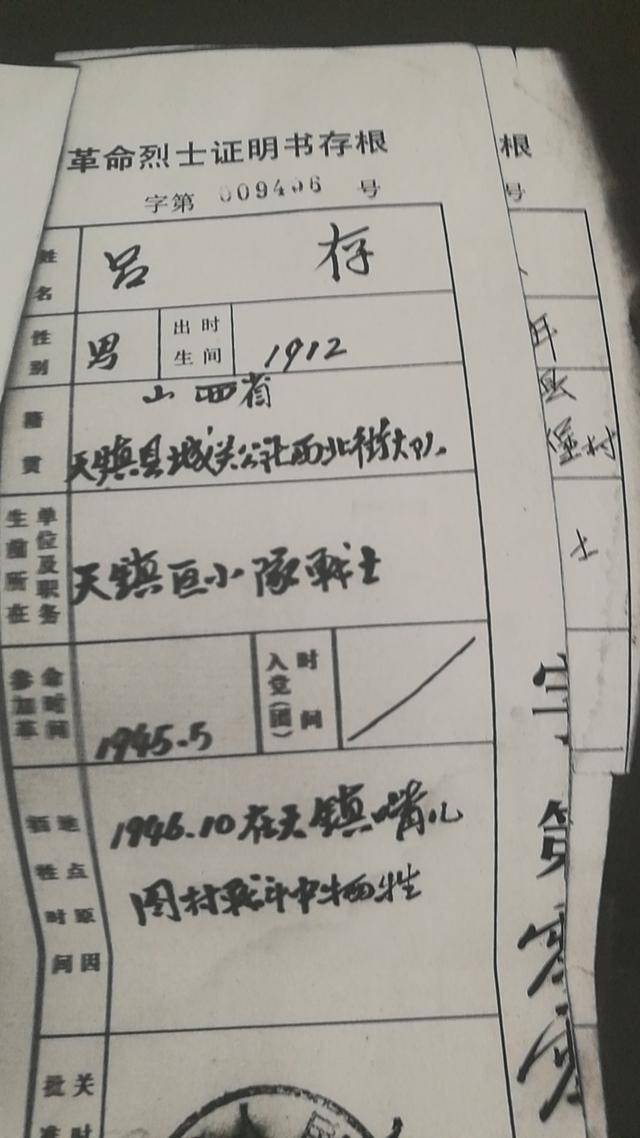 革命烈士证明书存根
字第 009406 号
姓名 吕存
性别 男 出生时间 1912
籍贯 山西省
天镇县城关公社西北街大队
生前所在单位及职务 天镇区小队战士
参加革命时间 1945.5 入党(团)时间
牺牲时间地点原因 1946.10在天镇嘴儿
图村战斗中牺牲
批准 关 时
根
号
县
堡村
士